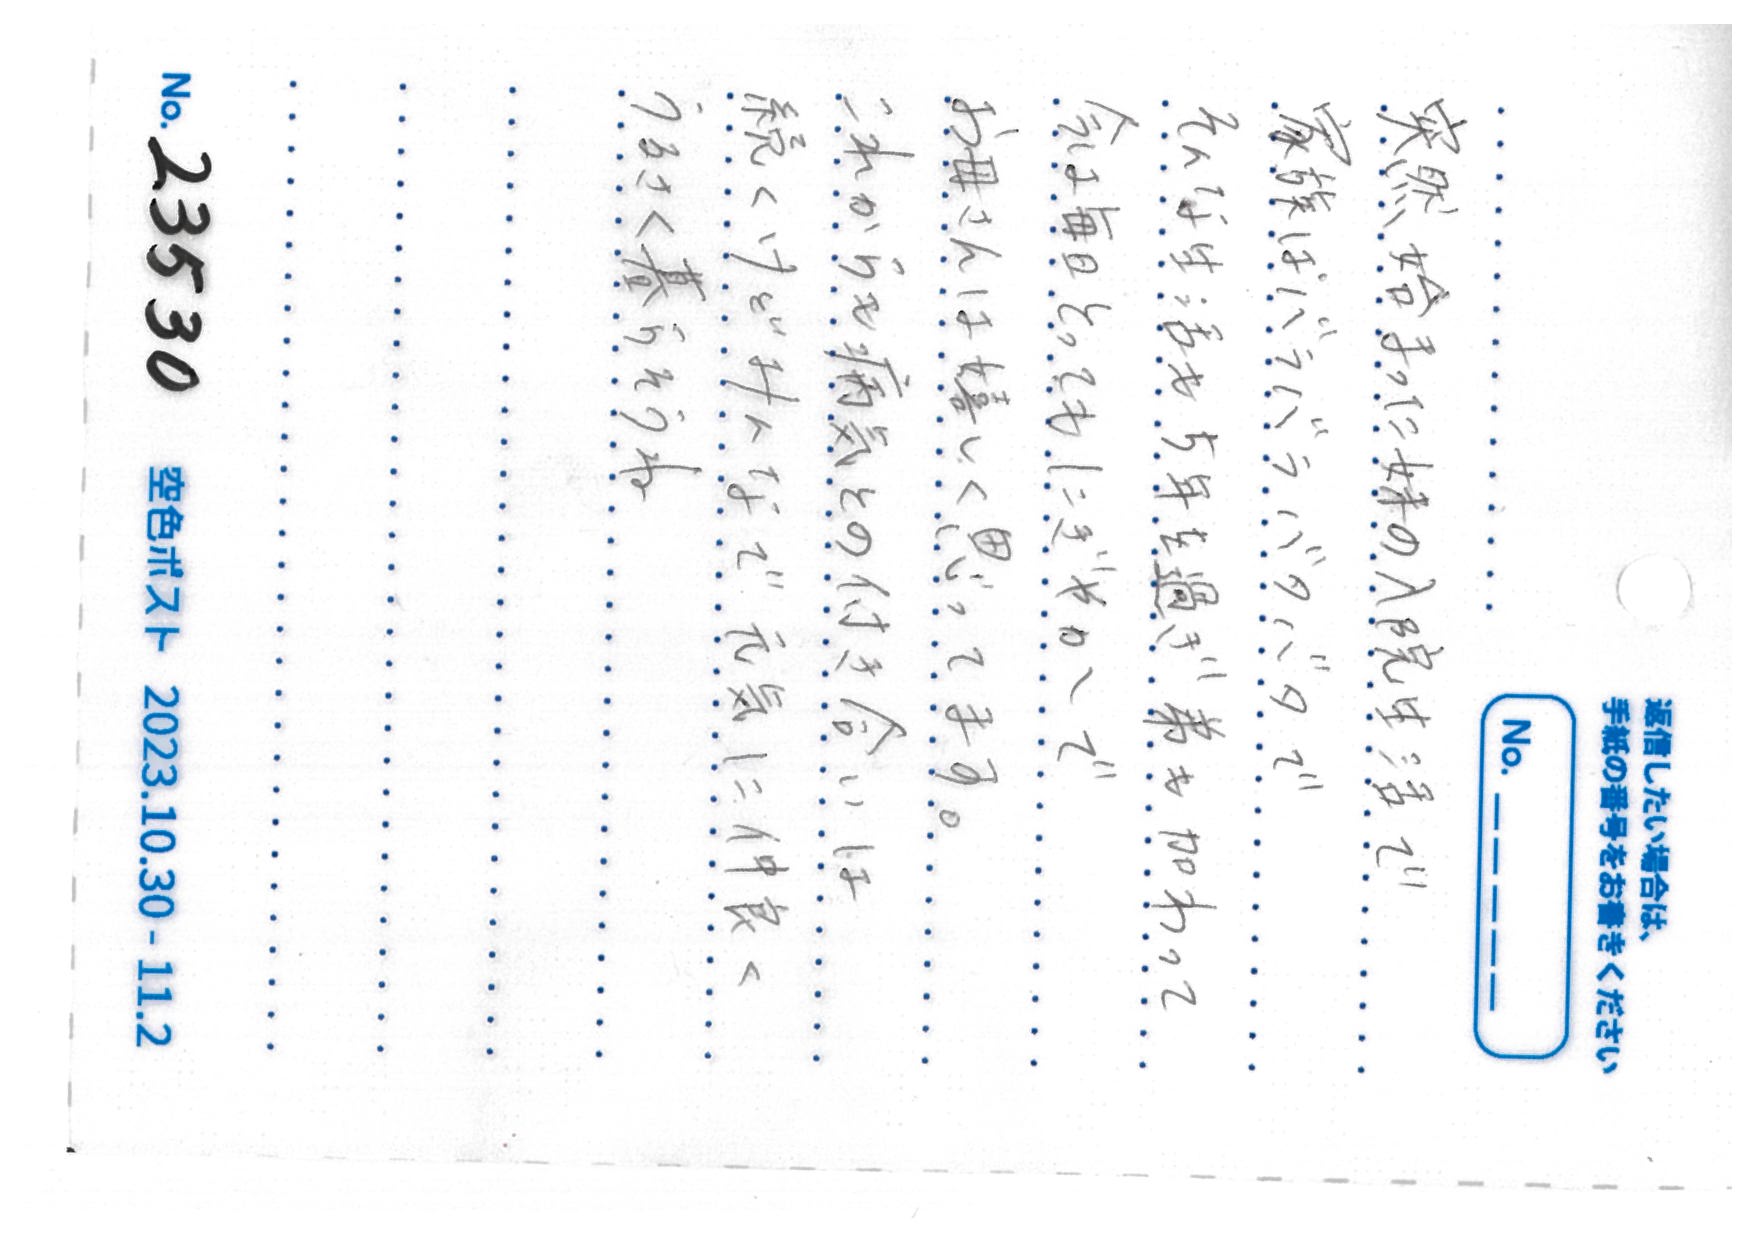 返信したい場合は、
手紙の番号をお書きください
No. _ _ _ _ _
突然始まった妹の入院生活で
家族はバラバラバタバタで
そんな生活も5年を過ぎ弟も加わって
今は毎日とってもにぎやかで
お母さんは嬉しく思ってます。
これからも病気との付き合いは
続くけどみんなで元気に仲良く
うるさく暮らそうね
No. 23530 空色ポスト 2023.10.30 - 11.2